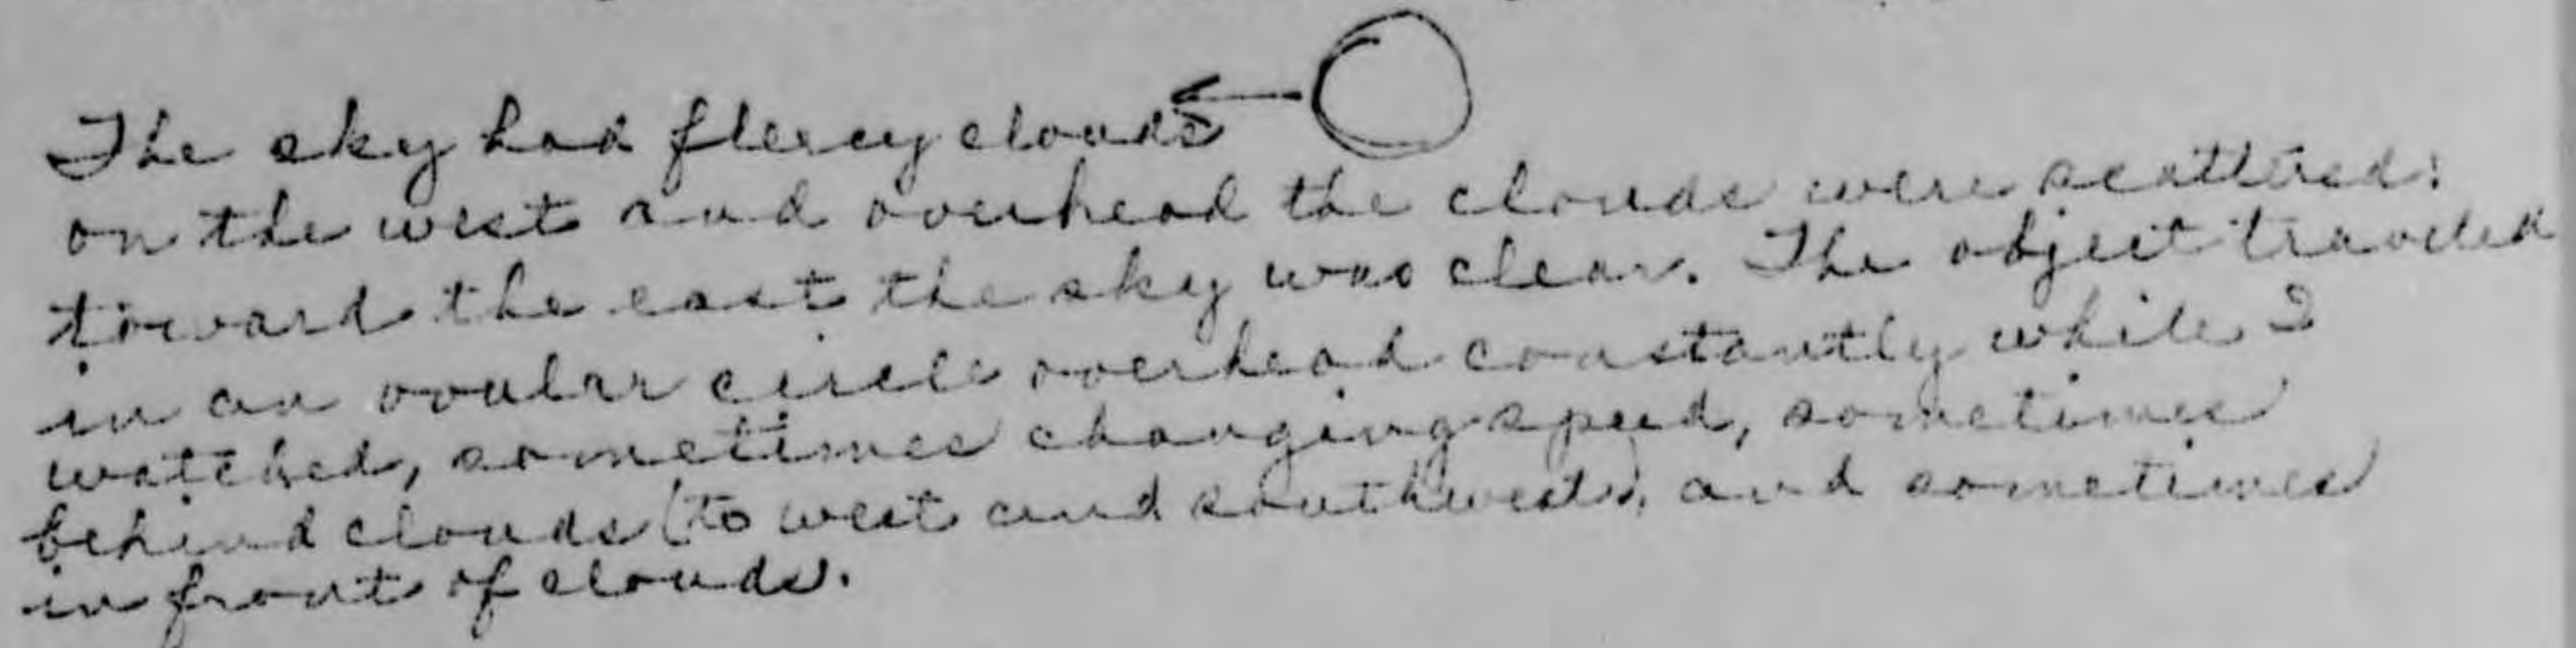 The sky had fleecy clouds
on the west and overhead the clouds were scattered;
toward the east the sky was clear. The object traveled
in an ovular circle overhead constantly while I
watched, sometimes changing speed, sometimes
behind clouds (to west and southwest), and sometimes
in front of clouds.